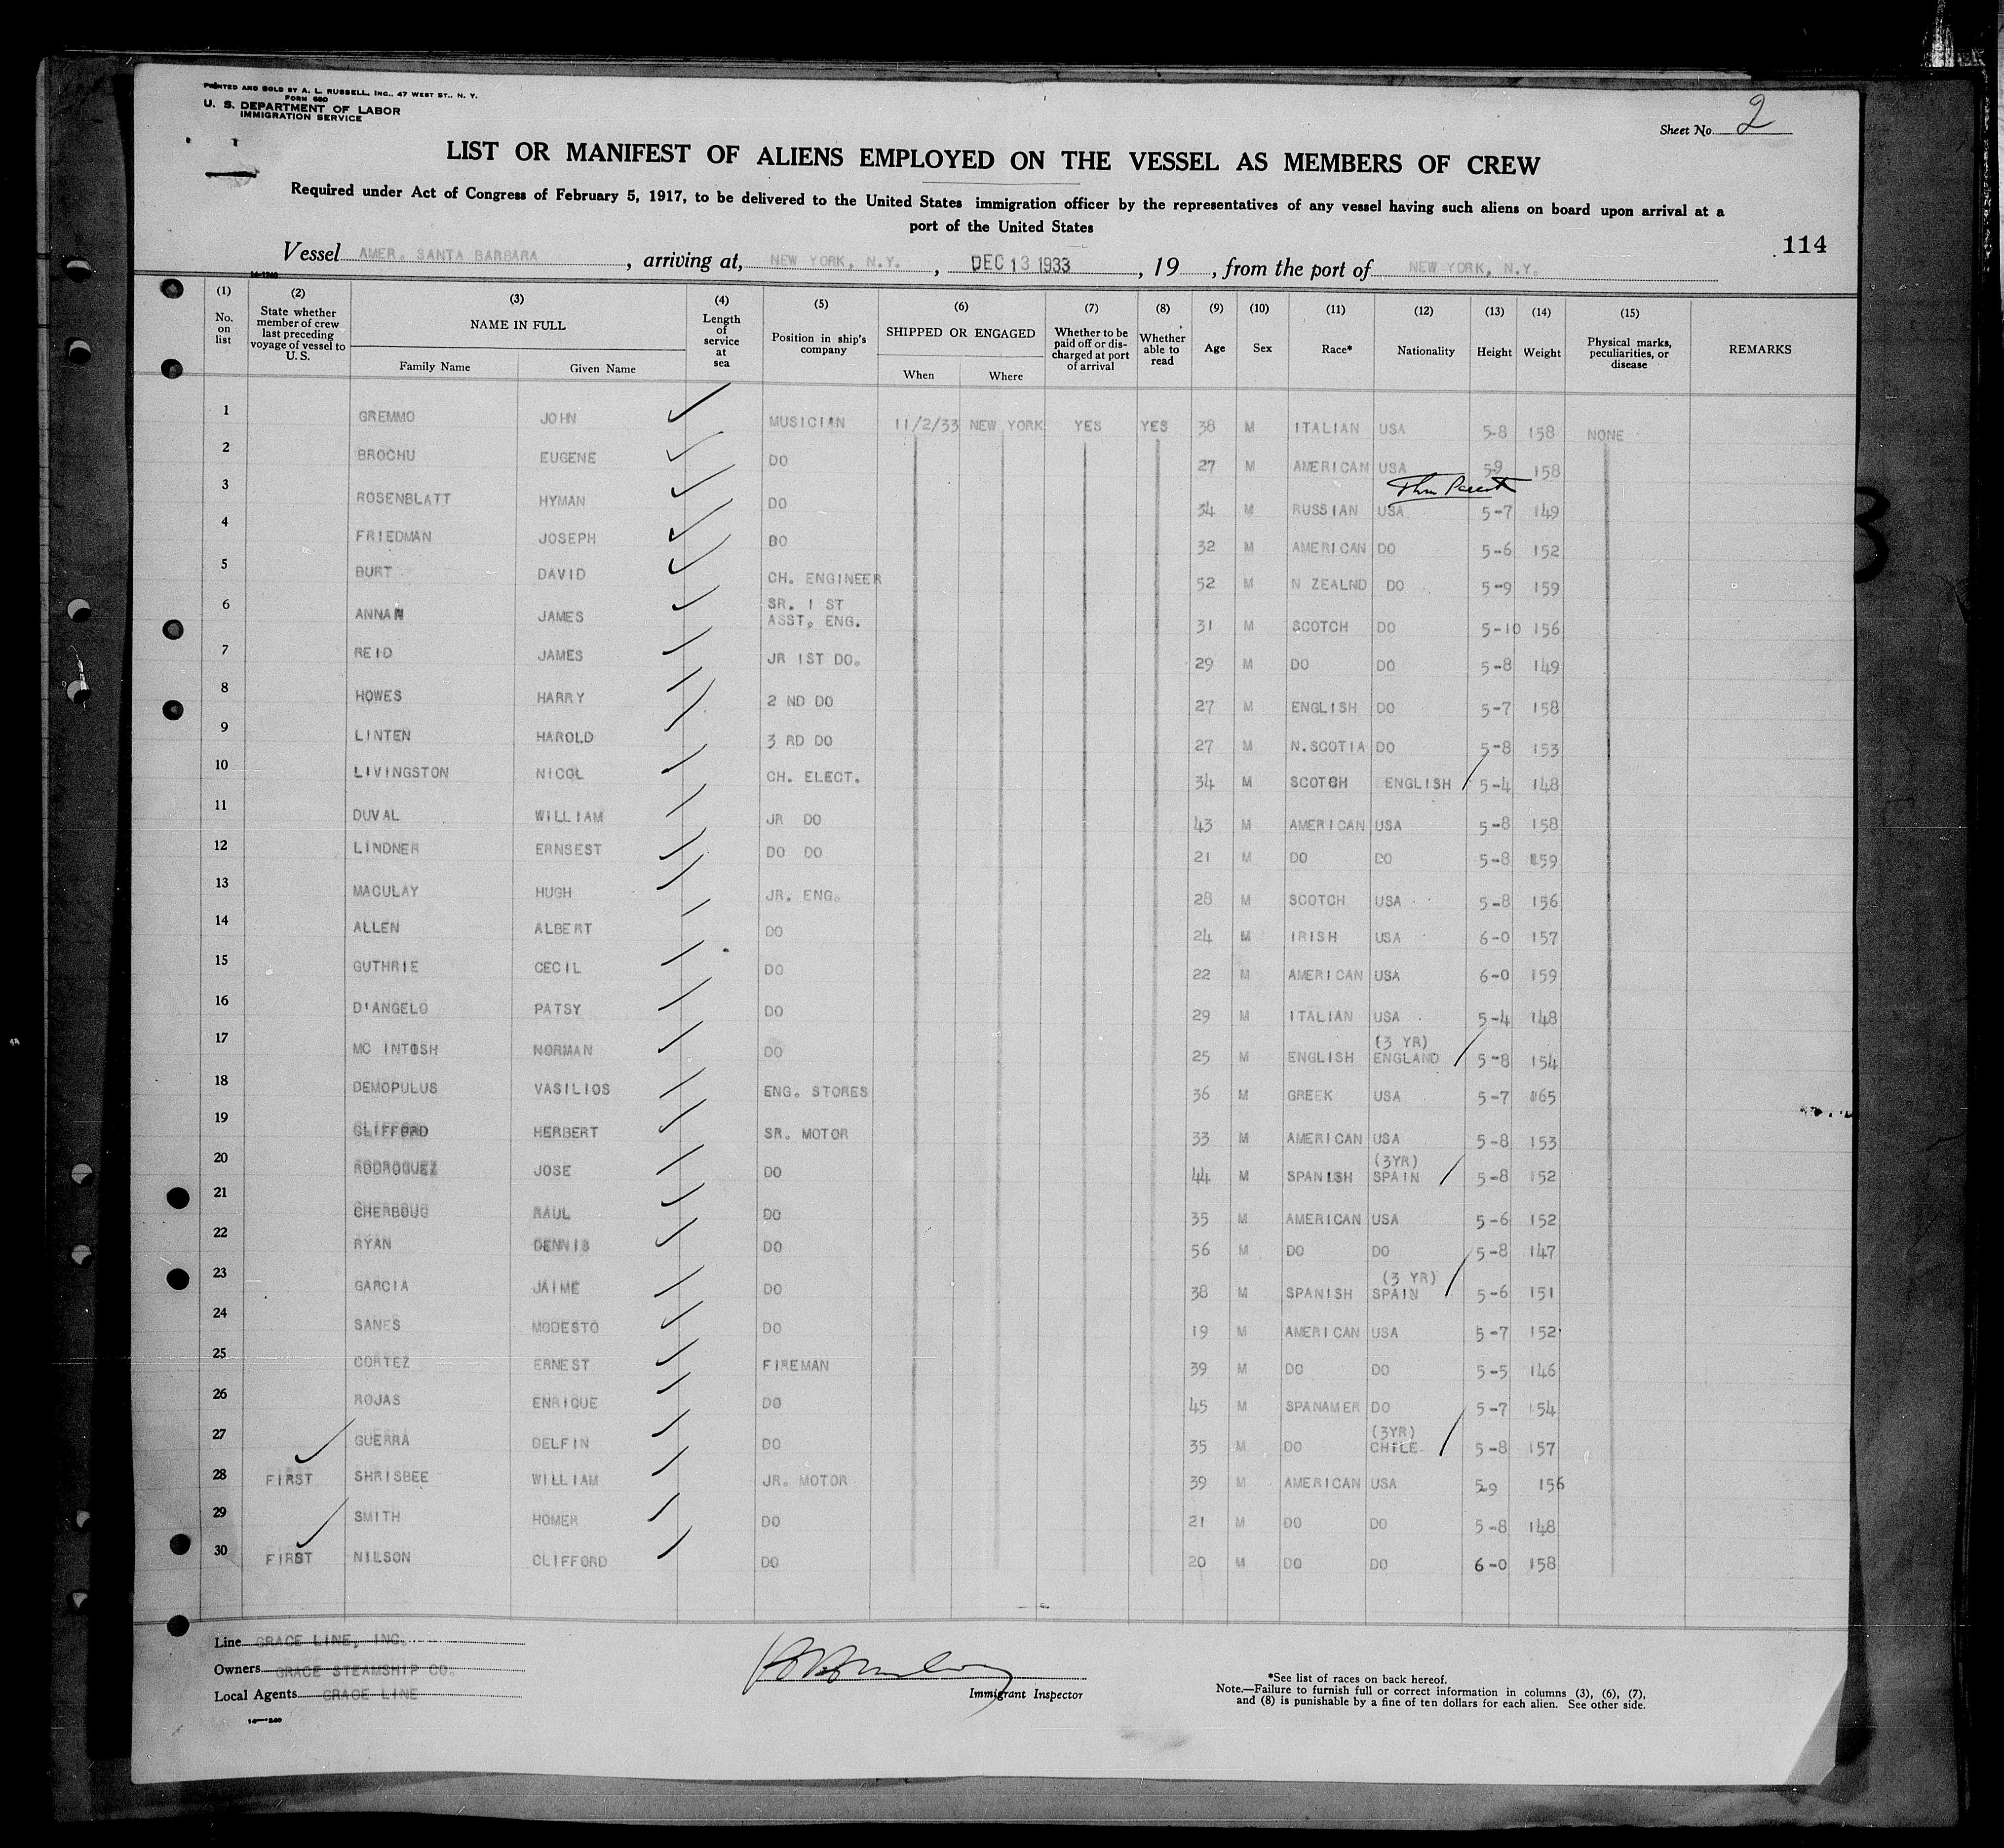 PRINTED AND SOLD BY A. L. RUSSELL, INC., 47 WEST ST., N. Y.
FORM 680
U. S. DEPARTMENT OF LABOR
IMMIGRATION SERVICE
Sheet No. 2
LIST OR MANIFEST OF ALIENS EMPLOYED ON THE VESSEL AS MEMBERS OF CREW
Required under Act of Congress of February 5, 1917, to be delivered to the United States immigration officer by the representatives of any vessel having such aliens on board upon arrival at a
port of the United States
114
Vessel AMER. SANTA BARBARA, arriving at, NEW YORK, N.Y., DEC 13 1933, 19, from the port of NEW YORK, N.Y.
14-1240
(1) (2) (3) (4) (5) (6) (7) (8) (9) (10) (11) (12) (13) (14) (15)
No. on list State whether member of crew last preceding voyage of vessel to U. S. NAME IN FULL Length of service at sea Position in ship's company SHIPPED OR ENGAGED Whether to be paid off or discharged at port of arrival Whether able to read Age Sex Race* Nationality Height Weight Physical marks, peculiarities, or disease REMARKS
Family Name Given Name When Where
1 GREMMO JOHN MUSICIAN 11/2/33 NEW YORK YES YES 38 M ITALIAN USA 5-8 158 NONE
2 BROCHU EUGENE DO 27 M AMERICAN USA 5-9 158
3 ROSENBLATT HYMAN DO 34 M RUSSIAN USA 5-7 149
4 FRIEDMAN JOSEPH DO 32 M AMERICAN DO 5-6 152
5 BURT DAVID CH. ENGINEER 52 M N ZEALND DO 5-9 159
6 ANNAN JAMES SR. 1 ST ASST. ENG. 31 M SCOTCH DO 5-10 156
7 REID JAMES JR 1ST DO. 29 M DO DO 5-8 149
8 HOWES HARRY 2 ND DO 27 M ENGLISH DO 5-7 158
9 LINTEN HAROLD 3 RD DO 27 M N.SCOTIA DO 5-8 153
10 LIVINGSTON NICOL CH. ELECT. 34 M SCOTCH ENGLISH 5-4 148
11 DUVAL WILLIAM JR DO 43 M AMERICAN USA 5-8 158
12 LINDNER ERNSEST DO DO 21 M DO DO 5-8 159
13 MACULAY HUGH JR. ENG. 28 M SCOTCH USA 5-8 156
14 ALLEN ALBERT DO 24 M IRISH USA 6-0 157
15 GUTHRIE CECIL DO 22 M AMERICAN USA 6-0 159
16 D'ANGELO PATSY DO 29 M ITALIAN USA 5-4 148
17 MC INTOSH NORMAN DO 25 M ENGLISH (3 YR) ENGLAND 5-8 154
18 DEMOPULUS VASILIOS ENG. STORES 36 M GREEK USA 5-7 165
19 CLIFFORD HERBERT SR. MOTOR 33 M AMERICAN USA 5-8 153
20 RODROGUEZ JOSE DO 44 M SPANISH (3YR) SPAIN 5-8 152
21 CHERBOUG RAUL DO 35 M AMERICAN USA 5-6 152
22 RYAN DENNIS DO 56 M DO DO 5-8 147
23 GARCIA JAIME DO 38 M SPANISH (3 YR) SPAIN 5-6 151
24 SANES MODESTO DO 19 M AMERICAN USA 5-7 152
25 CORTEZ ERNEST FIREMAN 39 M DO DO 5-5 146
26 ROJAS ENRIQUE DO 45 M SPANAMER DO 5-7 154
27 GUERRA DELFIN DO 35 M DO (3YR) CHILE 5-8 157
28 FIRST SHRISBEE WILLIAM JR. MOTOR 39 M AMERICAN USA 5-9 156
29 SMITH HOMER DO 21 M DO DO 5-8 148
30 FIRST NILSON CLIFFORD DO 20 M DO DO 6-0 158
Line GRACE LINE, INC.
Owners GRACE STEAMSHIP CO.
Local Agents GRACE LINE
14-1240
Immigrant Inspector
*See list of races on back hereof.
Note.—Failure to furnish full or correct information in columns (3), (6), (7),
and (8) is punishable by a fine of ten dollars for each alien. See other side.